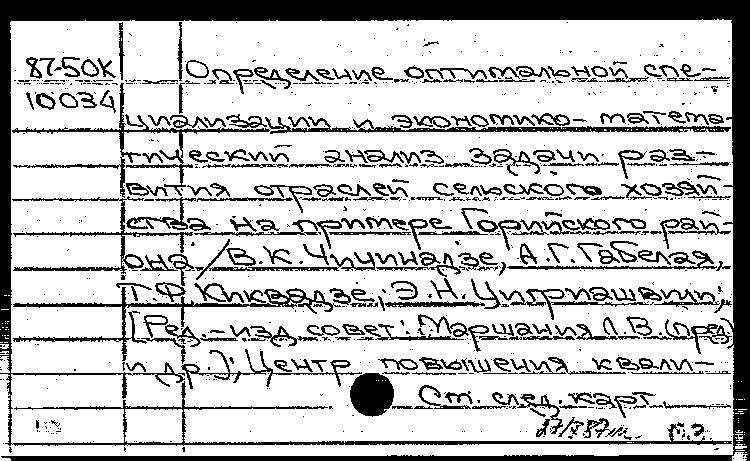 87-50К Определение оптимальной спе-
10034 циализации и экономико-матема-
тический анализ задачи раз-
вития отраслей сельского хозяй-
ства на примере Горийского рай-
она / В.К. Чичинадзе, А.Г. Габелая,
Т.Ф. Киквадзе, Э.Н. Цигриашвили;
[Ред.-изд. совет: Маршания Л.В. (пред)
и др.]; Центр повышения квали-
Ст. след. карт.
10 м.э.